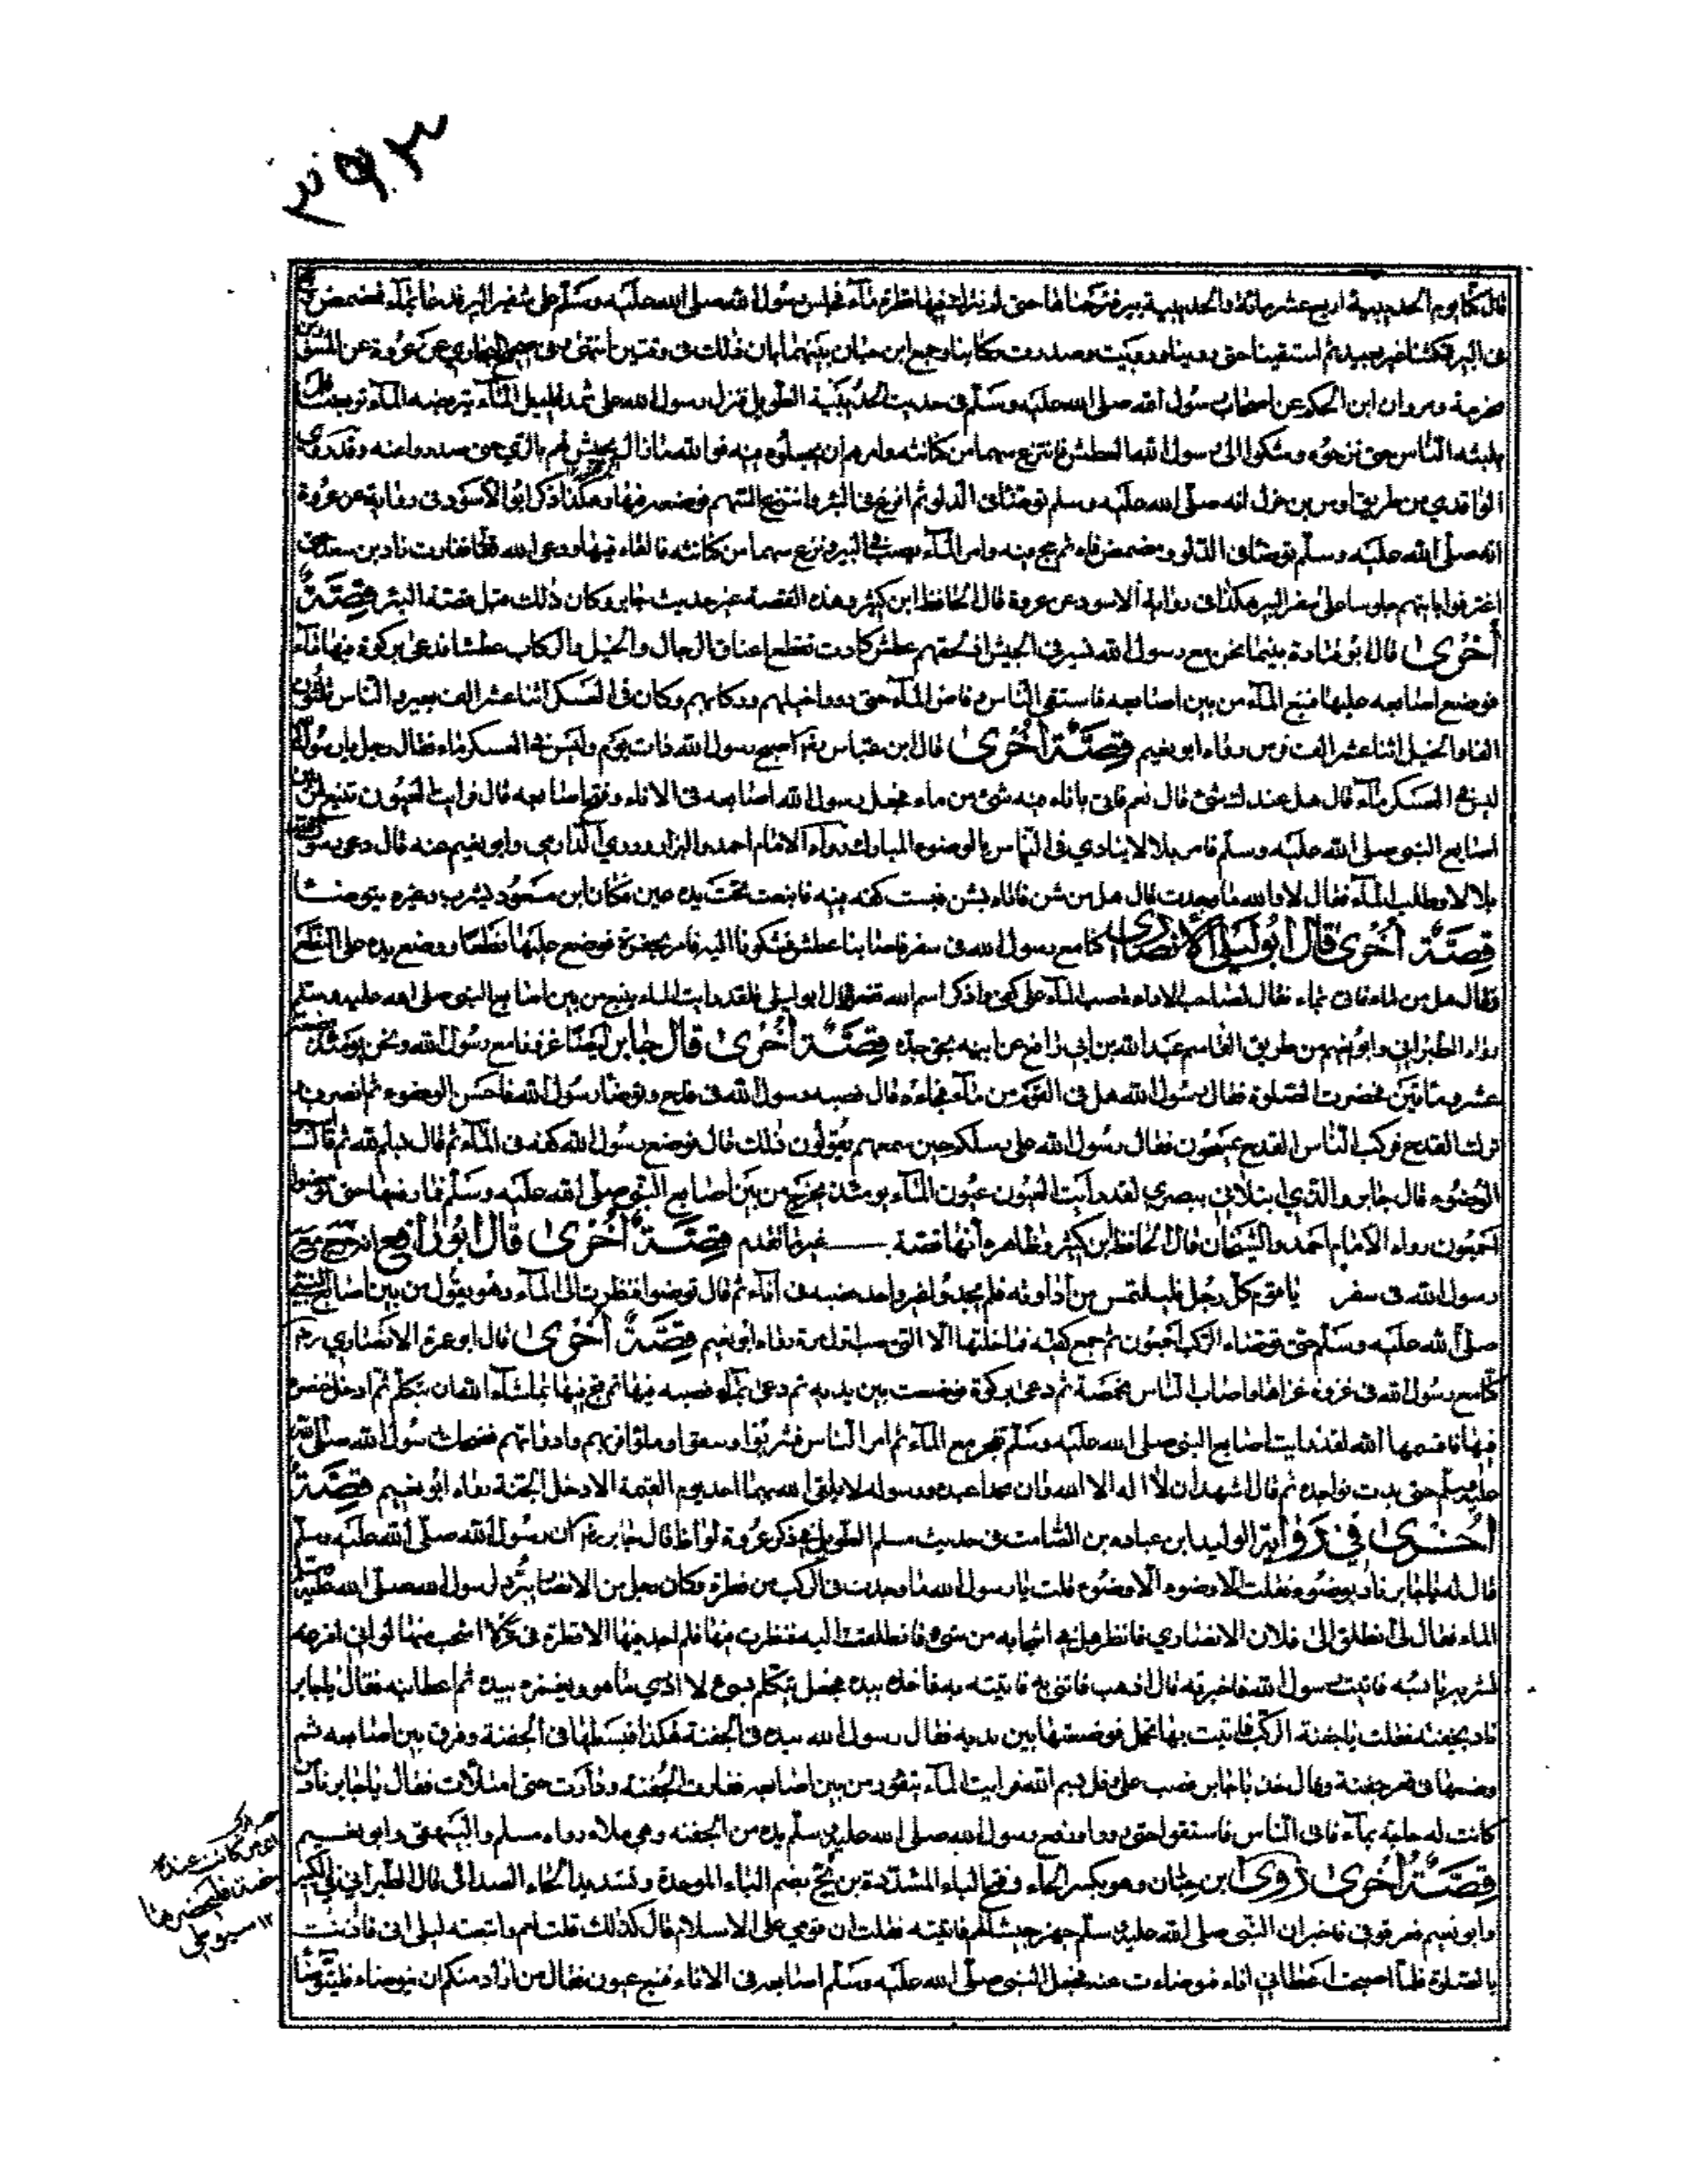 قال كنا يوم الحديبية اربع عشر مائة والحديبية بير فنزحناها حتى لم نترك فيها قطرة ماء فجلس رسول الله صلى الله عليه وسلم على شفير البير فدعا بماء فمضمض
فى البير فمكثنا غير بعيد ثم استقينا حتى روينا ورويت وصدرت ركابنا وجمع ابن حبان بينهما بان ذلك فى وقتين انتهى وفى صحيح البخاري عن عروة عن المسور
مخرمة ومروان ابن الحكم عن اصحاب رسول الله صلى الله عليه وسلم فى حديث الحديبية الطويل فنزل رسول الله على ثمد قليل الماء يتبرضه الماء تبرضا فلم
يلبثه الناس حتى نزحوه وشكوا الى رسول الله العطش فانتزع سهما من كنانته وامرهم ان يجعلوه فيه فوالله ما زال يجيش لهم بالري حتى صدروا عنه وقد روى
الواقدي من طريق اوس بن خولى انه صلى الله عليه وسلم توضأ فى الدلو ثم افرغ فى البئر وانتزع السهم فوضعه فيها وهكذا ذكر ابو الاسود فى روايته عن عروة
انه صلى الله عليه وسلم توضأ فى الدلو ومضمض فاه ثم مج فيه وامر الماء يصب فى البير ونزع سهما من كنانته فالقاه فيها ودعى الله تعالى ففارت
اغترفوا بانيتهم جلوسا على شفر البير هكذا فى رواية الاسود عن عروة قال الحافظ ابن كثير وهذه القصة غير حديث جابر وكان ذلك مثل قصة البئر قصة
أخرى قال ابو قتادة بينما نحن مع رسول الله نسير فى الجيش اذ لحقهم عطش كادت تقطع اعناق الرجال والخيل والركاب عطشا فدعى بركوة فيها ماء
فوضع اصابعه عليها فنبع الماء من بين اصابعه فاستقى الناس وفاض الماء حتى رووا خيلهم وركابهم وكان فى العسكر اثنا عشر الف بعير والناس ثلثون
الفا والخيل اثنا عشر الف فرس رواه ابو نعيم قصة أخرى قال ابن عباس اصبح رسول الله ذات يوم وليس فى العسكر ماء فقال رجل يا رسول الله
ليس فى العسكر ماء قال هل عندك شئ قال نعم فاتى باناء فيه شئ من ماء فجعل رسول الله اصابعه فى الاناء وفتح اصابعه قال فرايت العيون تنبع من بين
اصابع النبى صلى الله عليه وسلم فامر بلالا ينادي فى الناس بالوضوء المبارك رواه الامام احمد والبزار وروي الدارمي وابو نعيم عنه قال دعى رسول الله
بلالا وطلب الماء فقال لا والله ما وجدت قال هل من شن فاتاه بشن فبسط كفه فيه فانبعث تحت يده عين فكان ابن مسعود يشرب وغيره يتوضأ
قصة أخرى قال أبو ليلى الأنصاري كنا مع رسول الله فى سفر فاصابنا عطش فشكونا اليه فامر بحفرة فوضع عليها نطعا ووضع يده على النطع
وقال هل من ماء فاتى بماء فقال لصاحب الاداوة صب الماء على كفي واذكر اسم الله ففعل قال ابو ليلى فلقد رايت الماء ينبع من بين اصابع النبى صلى الله عليه وسلم
رواه الطبراني وابو نعيم من طريق القاسم عبد الله بن ابي رافع عن ابيه عن جده قصة أخرى قال جابر ايضا غزونا مع رسول الله ونحن يومئذ بضعة
عشر ومائتين فحضرت الصلوة فقال رسول الله هل فى القوم من ماء فجاءه قال فصبه رسول الله فى قدح وتوضأ رسول الله فاحسن الوضوء ثم انصرف و
ترك القدح فركب الناس القدح فقال رسول الله على رسلكم حين سمعهم يقولون ذلك قال فوضع رسول الله كفه فى الماء ثم قال بسم الله ثم قال
الوضوء قال جابر والذي ابتلاني ببصري لقد رايت العيون عيون الماء يومئذ تخرج من بين اصابع النبى صلى الله عليه وسلم فما رفعها حتى توضؤا
اجمعون رواه الامام احمد والشيخان قال الحافظ ابن كثير وظاهره انها قصة غير ما تقدم قصة أخرى قال ابو رافع انه خرج مع
رسول الله فى سفر يا قوم كل رجل فليلتمس من اداوته فلم يجدوا غير واحد فصبه فى اناء ثم قال توضوا فنظرت الى الماء وهو يفور من بين اصابع النبى
صلى الله عليه وسلم حتى توضاء الركب اجمعون ثم جمع كفيه فما خلتها الا التى صب اول مرة رواه ابو نعيم قصة أخرى قال ابو عمرة الانصاري
كنا مع رسول الله فى غزوة غزاها واصاب الناس مخمصة ثم دعى بركوة فوضعت بين يديه ثم دعى بماء فصبه فيها ثم مج فيها بما شاء الله ان يتكلم ثم ادخل خنصره
فيها فاقسم بالله لقد رايت اصابع النبى صلى الله عليه وسلم تفجر مع الماء ثم امر الناس فشربوا وسقوا وملؤا قربهم وادواتهم فضحك رسول الله صلى الله
عليه وسلم حتى بدت نواجده ثم قال اشهد ان لا اله الا الله وان محمدا عبده ورسوله لا يلقى الله بهما احد يوم القيمة الا دخل الجنة رواه ابو نعيم قصة
أخرى في رواية الوليد ابن عباده بن الصامت فى حديث مسلم الطويل فى ذكر غزوة بواط قال جابر ان رسول الله صلى الله عليه وسلم
قال له يا جابر ناد بوضوء فقلت الا وضوء الا وضوء قلت يا رسول الله ما وجدت فى الركب من قطرة وكان رجل من الانصار يبرد لرسول الله صلى الله عليه وسلم
الماء فقال لى انطلق الى فلان الانصاري فانظر هل فى اشجابه من شئ فانطلقت اليه فنظرت فيها فلم اجد فيها الا قطرة فى عزلاء شجب منها لو اني افرغه
لشربه يابسه فاتيت رسول الله فاخبرته قال اذهب فاتنى به فاتيته به فاخذه بيده فجعل يتكلم بشئ لا ادري ما هو ويغمزه بيده ثم اعطانيه فقال يا جابر
ناد بجفنة فقلت يا جفنة الركب فاتيت بها تحمل فوضعتها بين يديه فقال رسول الله بيده فى الجفنة هكذا فبسطها فى الجفنة وفرق بين اصابعه ثم
وضعها فى قعر جفنة وقال خذ يا جابر فصب علي وقل بسم الله فرايت الماء يتفور من بين اصابعه ففارت الجفنة ودارت حتى امتلأت فقال يا جابر ناد من
كانت له حاجة بماء فاتى الناس فاستقوا حتى رووا ورفع رسول الله صلى الله عليه وسلم يده من الجفنة وهي ملاء رواه مسلم والبيهقى وابو نعيم
قصة أخرى روى ابن حبان وهو بكسر الحاء وفتح الباء المشددة بن بح بضم الباء الموحدة وتشديد الحاء الصدائى قال الطبراني في الكبير
وابو نعيم فاخبر ان النبى صلى الله عليه وسلم جهز جيشا فاتيته فقلت ان قومي على الاسلام قال كذلك قلت نعم واتبعته ليلى فاذنت
بالصلوة فلما اصبحت اعطاني اناء فتوضاءت عنه فجعل النبى صلى الله عليه وسلم اصابعه فى الاناء فنبع عيون فقال من اراد منكم ان يتوضاء فليتوضا
من كانت عنده
جفنة فليحضرها
١٢ سيوطى